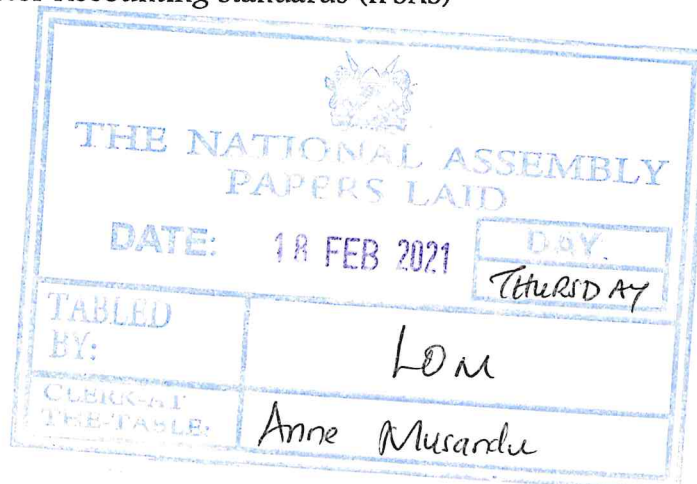 Accounting Standards (IPSAS)
THE NATIONAL ASSEMBLY
PAPERS LAID
DATE: 18 FEB 2021
DAY.
THURSDAY
TABLED
BY:
LOM
CLERK-AT
THE-TABLE:
Anne Musandu